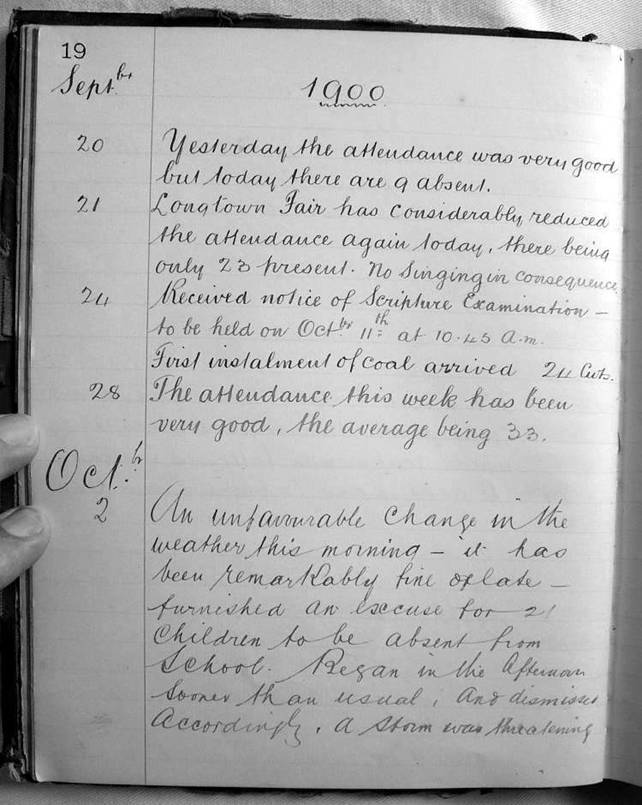 19
Septbr
1900
20 Yesterday the attendance was very good
but today there are 9 absent.
21 Longtown Fair has considerably reduced
the attendance again today, there being
only 23 present. No Singing in consequence.
24 Received notice of Scripture Examination –
to be held on Octbr 11th at 10.45 a.m.
First instalment of coal arrived 24 Cwts.
28 The attendance this week has been
very good, the average being 33.
Oct.br
2 An unfavourable change in the
weather this morning – it has
been remarkably fine of late –
furnished an excuse for 21
children to be absent from
School. Began in the Afternoon
sooner than usual, and dismissed
accordingly. A storm was threatening